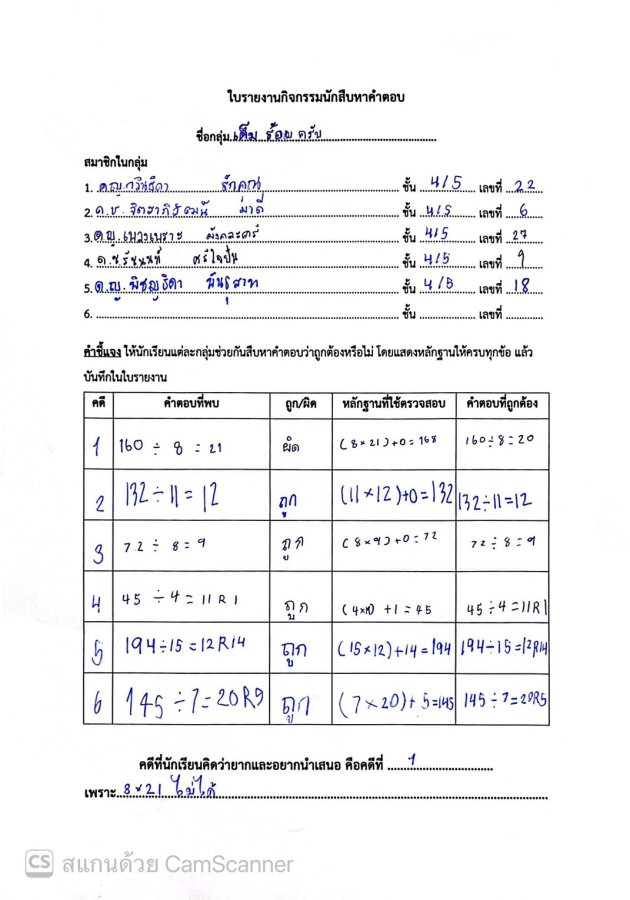 ใบรายงานกิจกรรมนักสืบหาคำตอบ
ชื่อกลุ่ม เต็ม ร้อย ครับ
สมาชิกในกลุ่ม
1. ดญ.กวินธิดา รักคุณ ชั้น 4/5 เลขที่ 22
2. ด.ช. จิตราภิวัฒน์ ม่าดี ชั้น 4/5 เลขที่ 6
3. ดญ. มังคละคีรี ชั้น 4/5 เลขที่ 27
4. ด.ช. ศรีใจปั๋น ชั้น 4/5 เลขที่ 9
5. ด.ญ. พิชญธิดา พันธุสาท ชั้น 4/5 เลขที่ 18
6. ชั้น เลขที่
คำชี้แจง ให้นักเรียนแต่ละกลุ่มช่วยกันสืบหาคำตอบว่าถูกต้องหรือไม่ โดยแสดงหลักฐานให้ครบทุกข้อ แล้ว
บันทึกในใบรายงาน
คดี คำตอบที่พบ ถูก/ผิด หลักฐานที่ใช้ตรวจสอบ คำตอบที่ถูกต้อง
1 160 ÷ 8 = 21 ผิด (8×21)+0=168 160÷8=20
2 132÷11=12 ถูก (11×12)+0=132 132÷11=12
3 72 ÷ 8=9 ถูก (8×9)+0=72 72÷8=9
4 45 ÷4=11R1 ถูก (4×11) +1=45 45÷4=11R1
5 194÷15=12R14 ถูก (15×12)+14=194 194÷15=12R14
6 145 ÷7=20R5 ถูก (7×20)+5=145 145÷7=20R5
คดีที่นักเรียนคิดว่ายากและอยากนำเสนอ คือคดีที่ 1
เพราะ 8×21 ไม่ได้
CS สแกนด้วย CamScanner